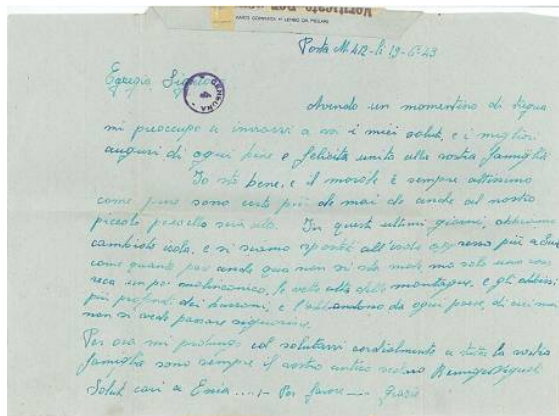 Verificato per cen
PARTE GOMMATA - LEMBO DA PIEGARE
Posta M. 412 - li 19-6-43
Egregio Signore
CENSURA 4
Avendo un momentino di tregua
mi preoccupo a inviarvi a voi i miei saluti, e i migliori
auguri di ogni bene e felicità unito alla vostra famiglia
Io sto bene, e il morale è sempre altissimo
come pure sono certo più che mai di anche al nostro
piccolo
In questi ultimi giorni, abbiamo
cambiato isola, e si siamo spostati all'isola appresso più a
come quanto pare anche qua non si sta male, ma solo una cosa
reca un poi malinconico, le vette alte delle montagne, e gli abissi
più profondi dei burroni, e l'abbandono da ogni paese, di cui mai
non si vede passare signorine.
Per ora mi prolungo col salutarvi cordialmente a tutta la vostra
famiglia sono sempre il vostro antico
Saluti cari a Enia Per favore grazie